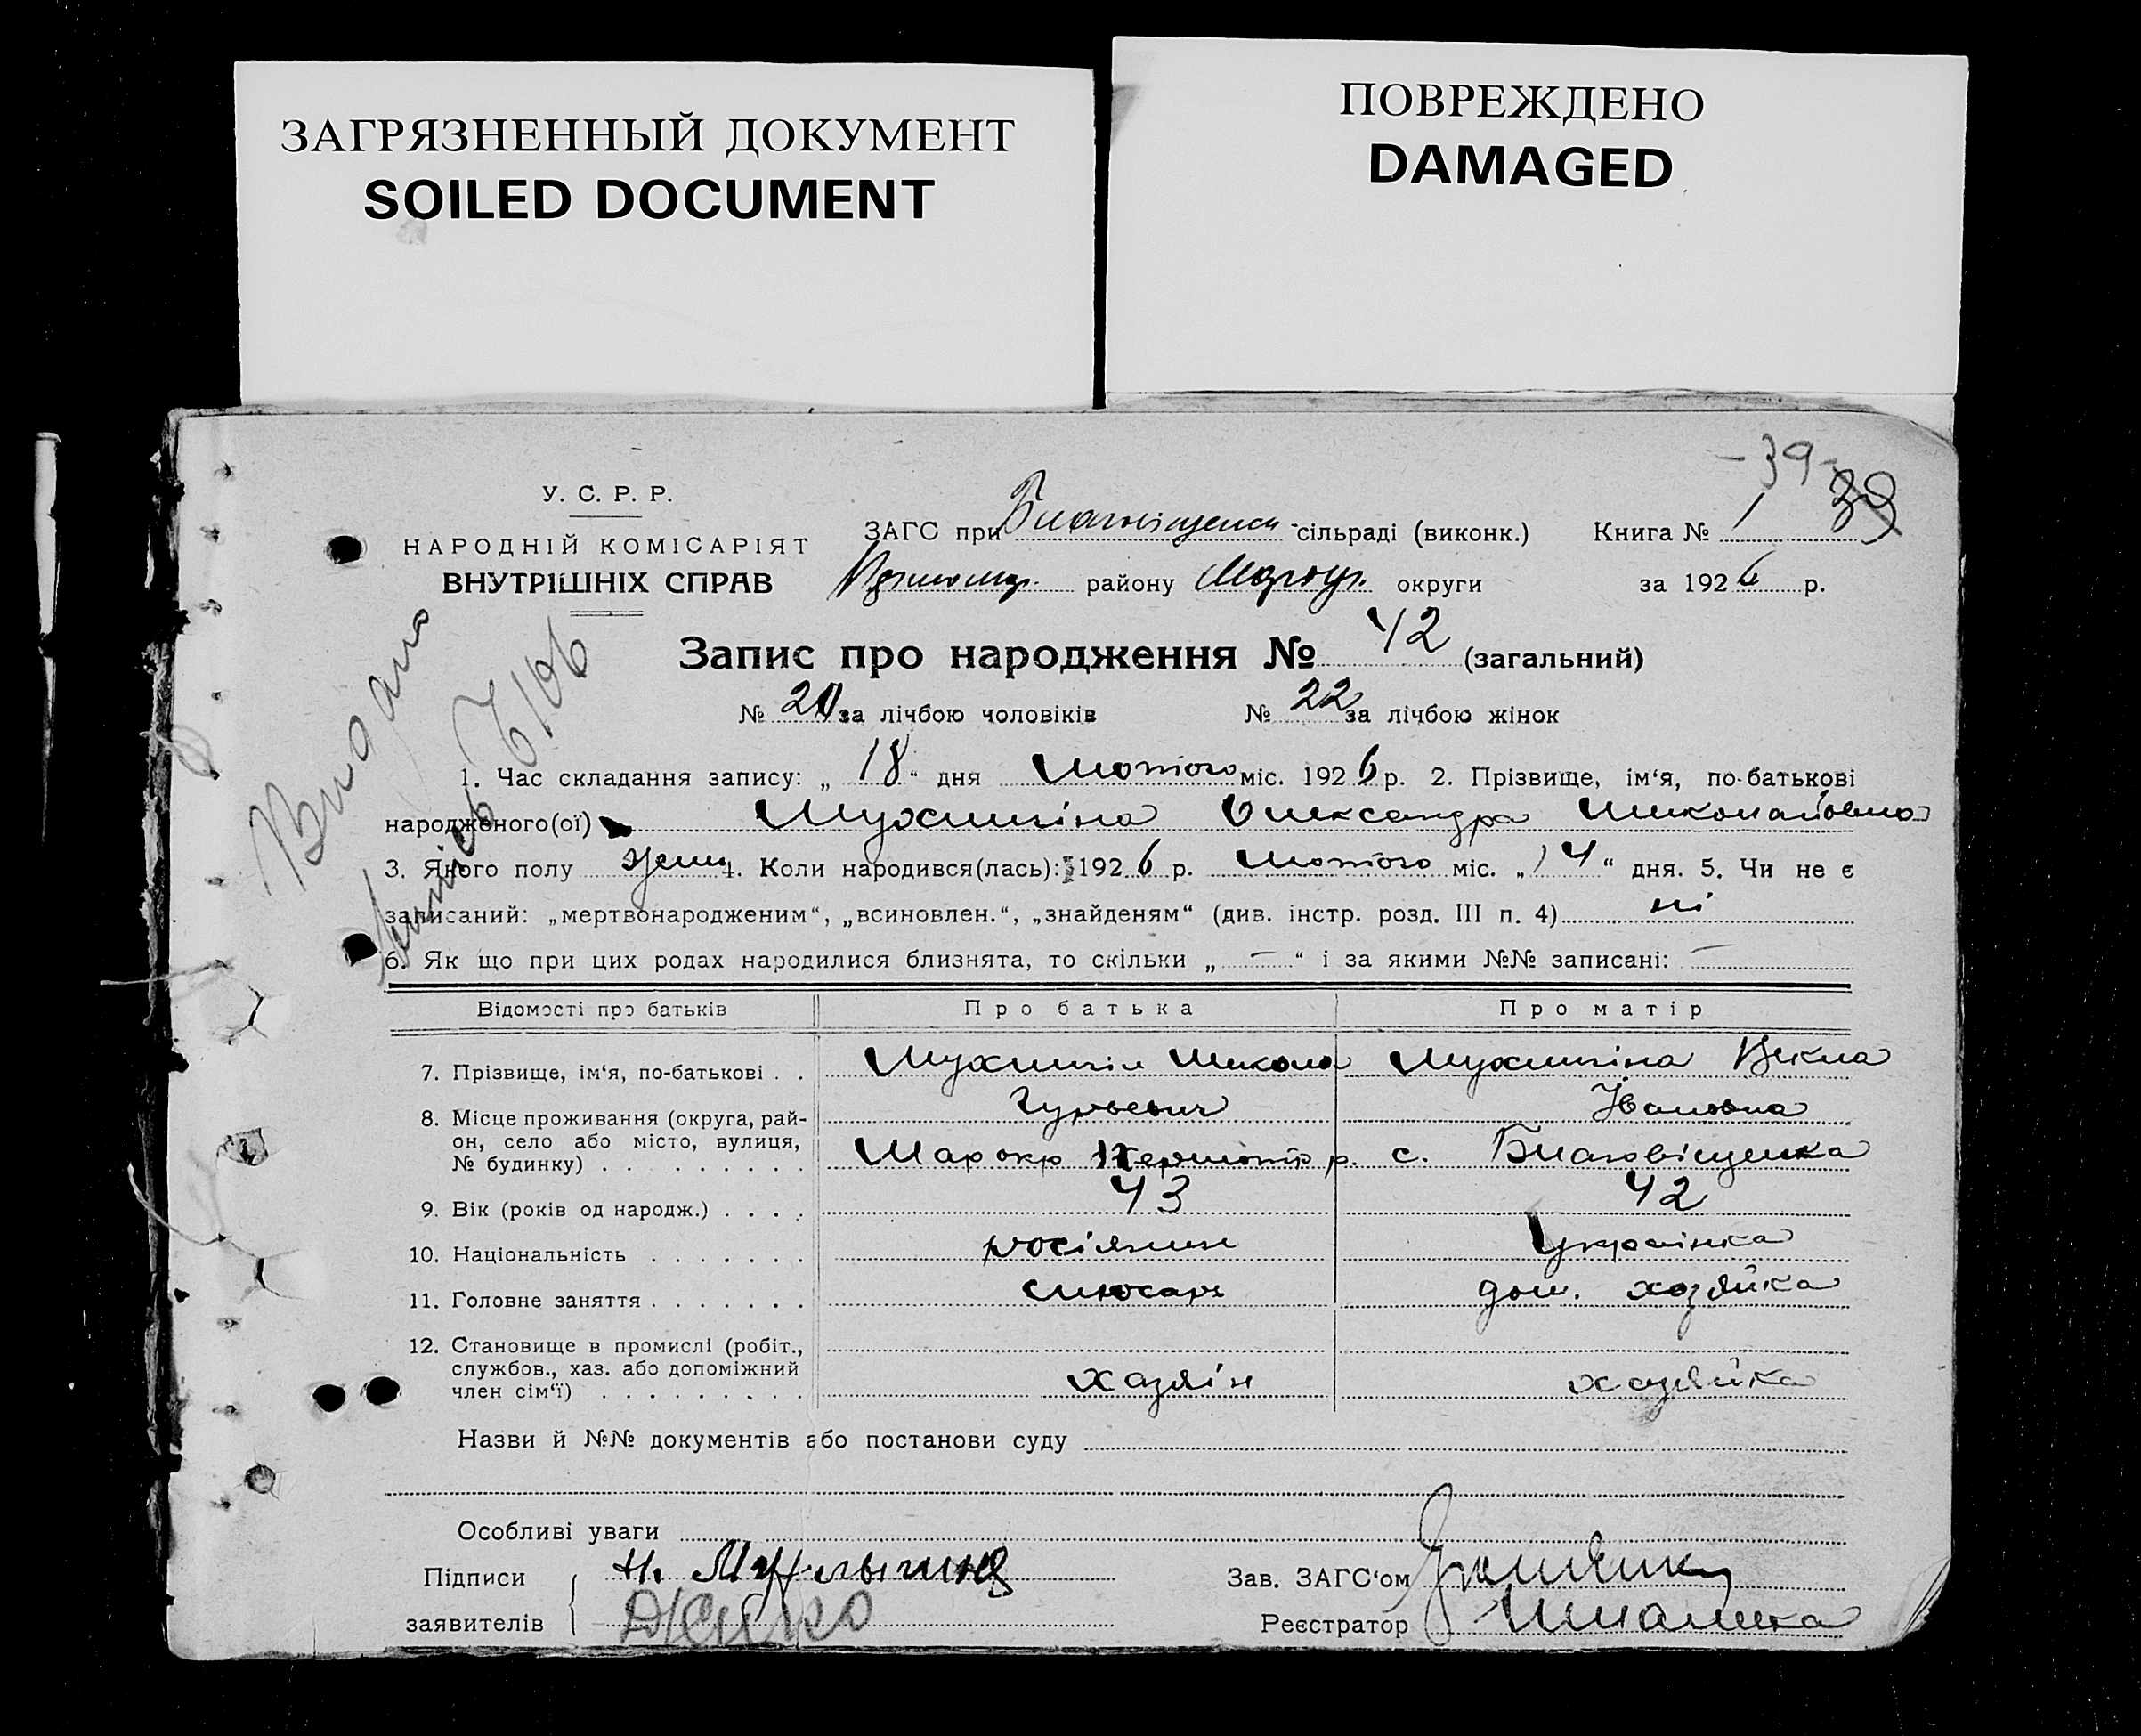 ЗАГРЯЗНЕННЫЙ ДОКУМЕНТ
SOILED DOCUMENT
ПОВРЕЖДЕНО
DAMAGED
-39-
39
У. С. Р. Р.
НАРОДНІЙ КОМІСАРІЯТ
ВНУТРІШНІХ СПРАВ
ЗАГС при Благовіщенск -сільраді (виконк.) Книга № 1
району Маріуп. округи за 1926 р.
Видано
Запис про народження № 42 (загальний)
№ 20 за лічбою чоловіків № 22 за лічбою жінок
1. Час складання запису: „ 18 “ дня Лютого міс. 1926 р. 2. Прізвище, ім‘я, по-батькові
народженого(ої) Мухлигіна Олександра Миколаївна
3. Якого полу жен 4. Коли народився(лась): 1926 р. Лютого міс. „ 14 “ дня. 5. Чи не є
записаний: „мертвонародженим“, „всиновлен.“, „знайденям“ (див. інстр. розд. III п. 4) ні
6. Як що при цих родах народилися близнята, то скільки „ — “ і за якими №№ записані: —
Відомості про батьків Про батька Про матір
7. Прізвище, ім‘я, по-батькові . . Мухлигін Микола Мухлигіна Векла
8. Місце проживання (округа, рай- Гурьевич Івановна
он, село або місто, вулиця,
№ будинку) . . . . . . . . . Мар окр р. с. Благовіщенка
9. Вік (років од народж.) . . . . 43 42
10. Національність . . . . . . . росіянин Українка
11. Головне заняття . . . . . . . слюсарь дом. хозяйка
12. Становище в промислі (робіт.,
службов., хаз. або допоміжний
член сім‘ї) . . . . . . . . . хазяін хазяйка
Назви й №№ документів або постанови суду
Особливі уваги
Підписи Н. Мухлыгина
Зав. ЗАГС‘ом
заявителів
Реєстратор